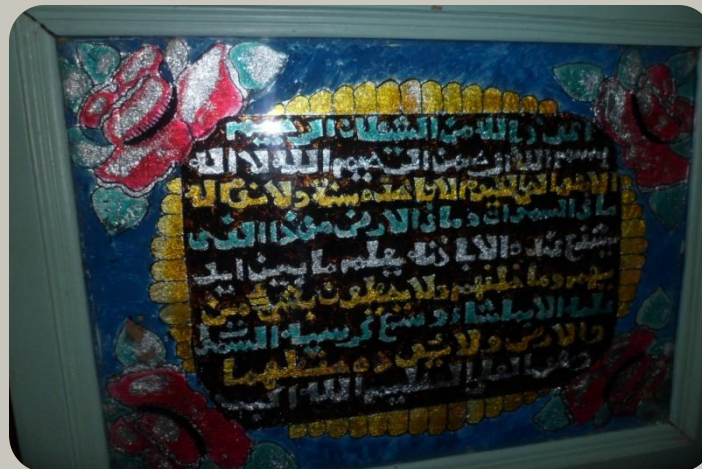 اعوذ بالله من الشيطان الرجيم
بسم الله الرحمن الرحيم الله لا اله
الا هو الحي القيوم لا تاخذه سنة ولا نوم له
ما في السموات وما في الارض من ذا الذي
يشفع عنده الا باذنه يعلم ما بين ايد
يهم وما خلفهم ولا يحيطون بشئ من
علمه الا بماشاء وسع كرسيه السمو
والارض ولا يئوده حفظهما
وهو العلي العظيم الله اكبر